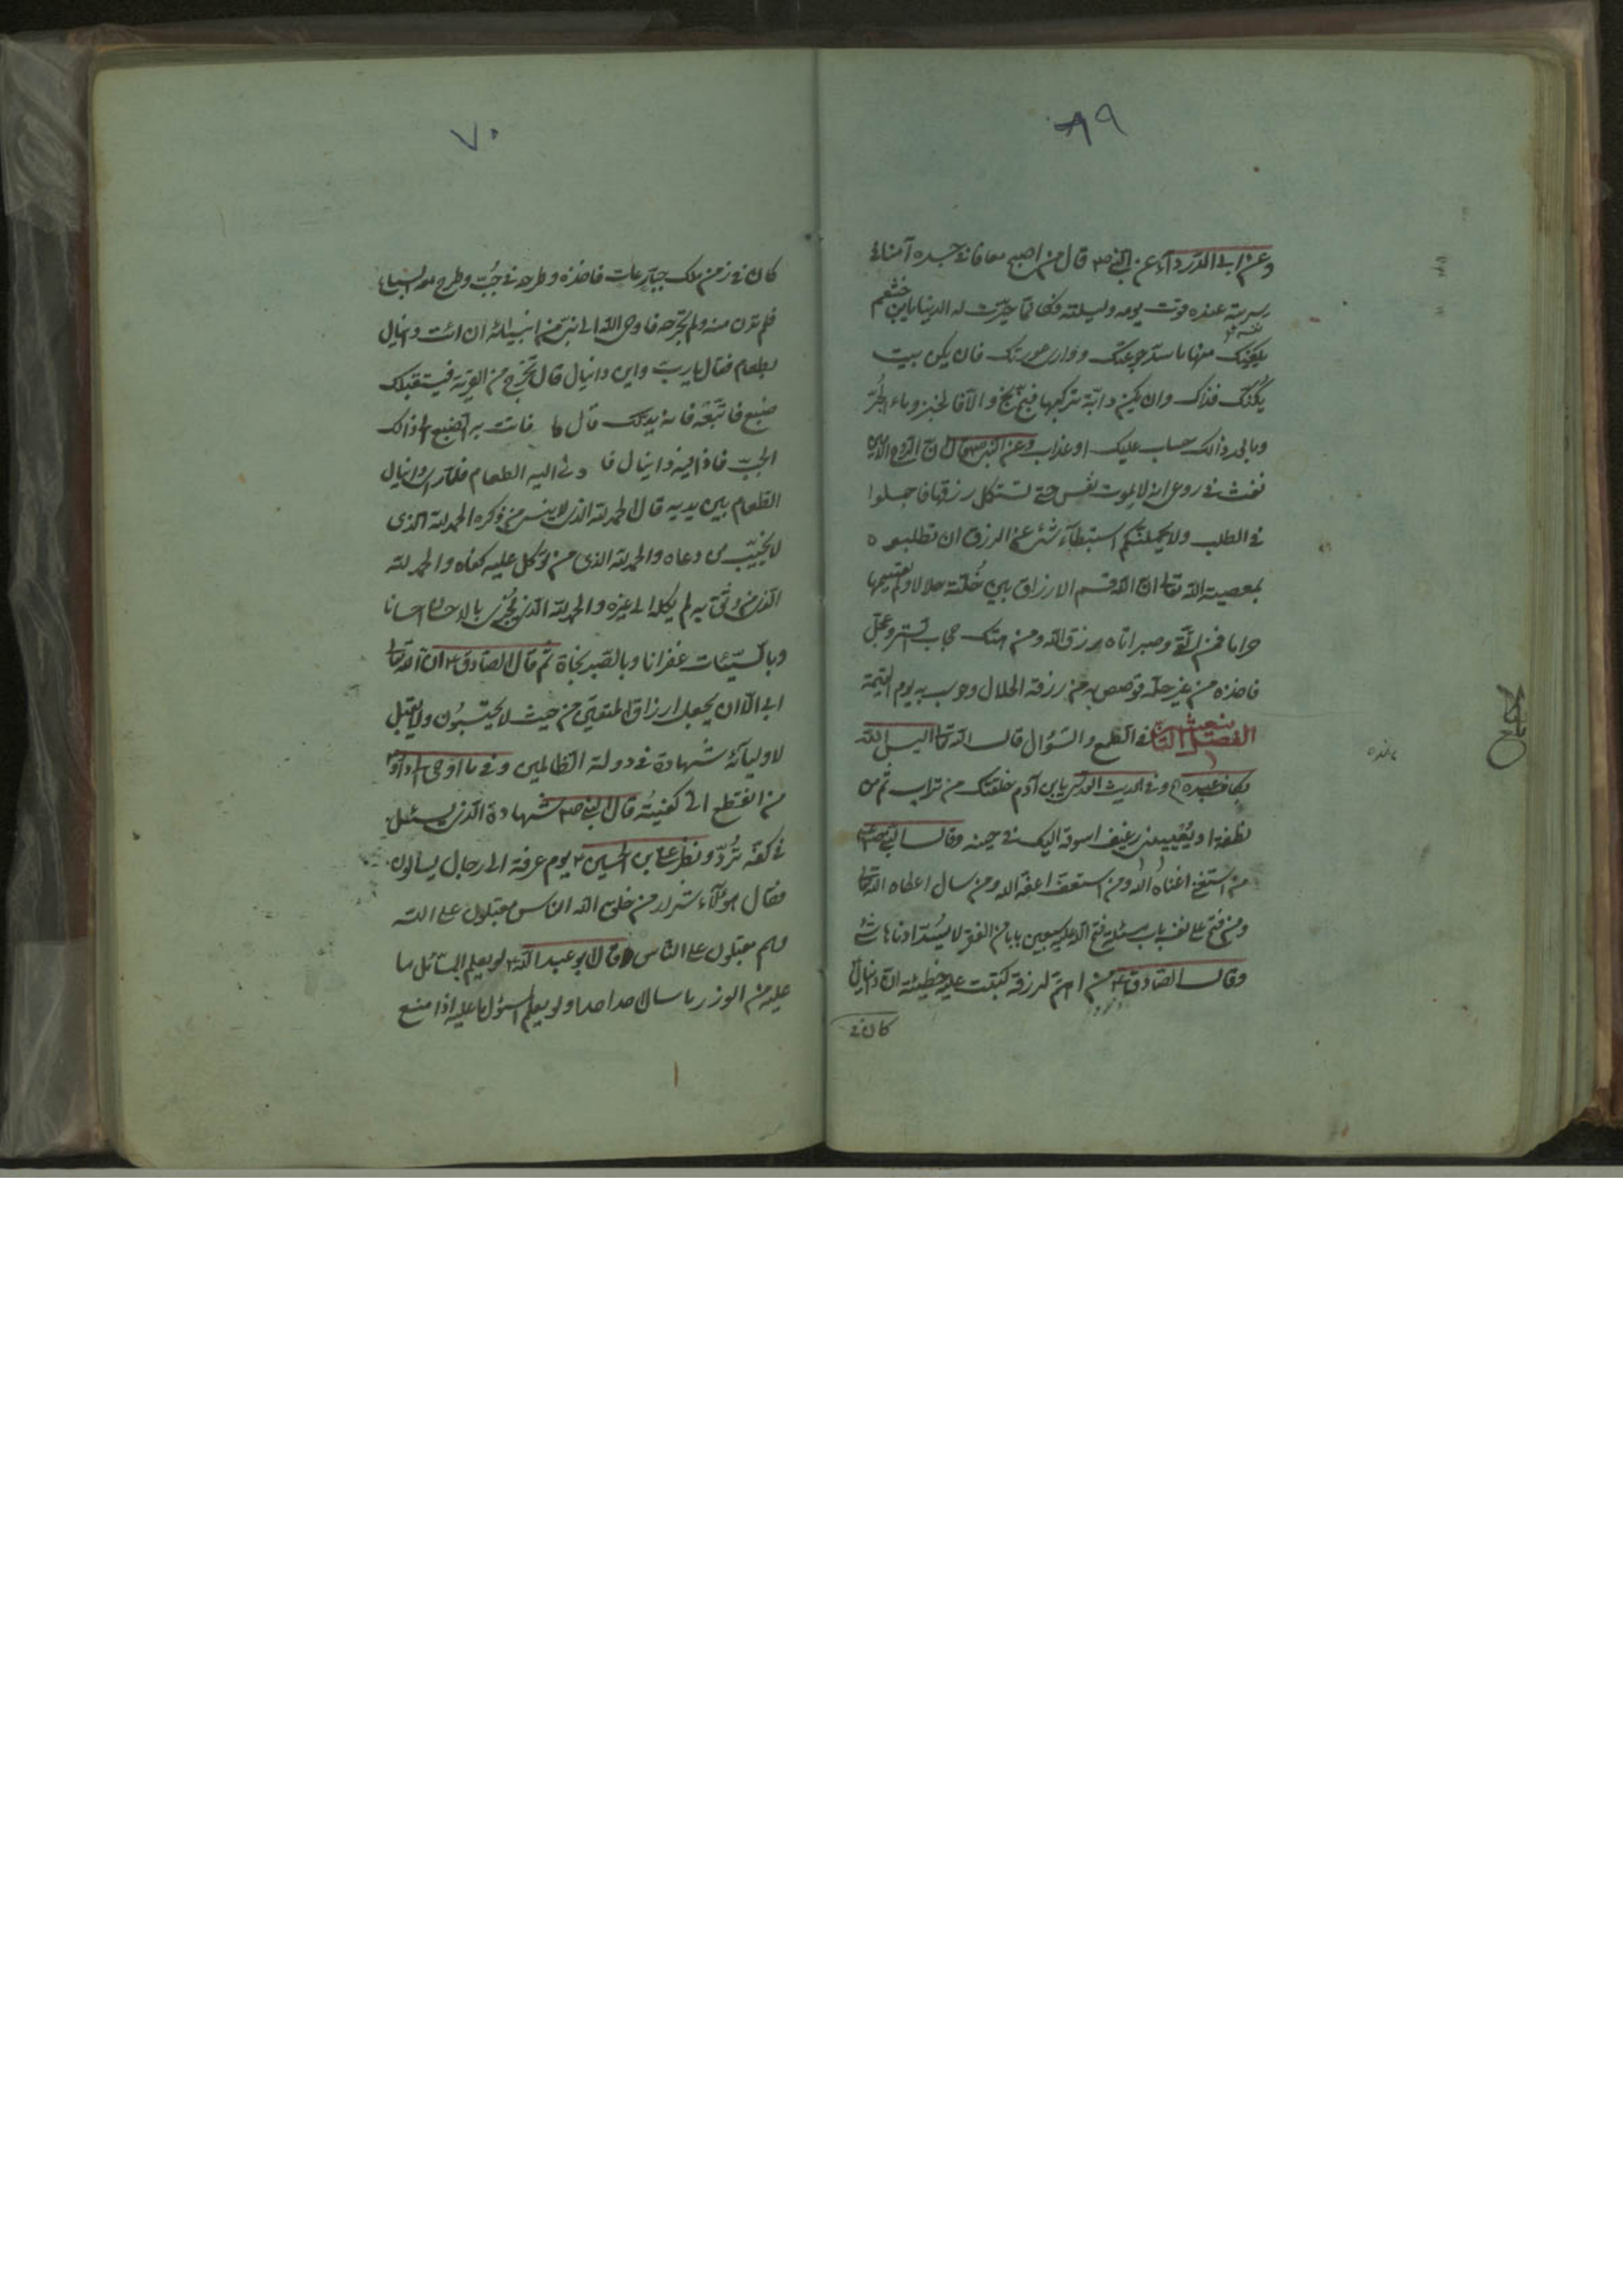 ٦٩
وعن ابي الدرداء عن النبي ص قال من اصبح معافا في جسده آمنا في
سربه عنده قوت يومه وليلته فكانما حيزت له الدنيا يابن خثعم
يكفيك منها ما سد جوعتك ووارى عورتك فان يكن بيت
يكنك فذاك وان يكن دابة تركبها فبخ بخ والا فالخبز وماء الجر
وما بعد ذلك حساب عليك او عذاب وعن النبي ص قال ان الروح الامين
نفث في روعي انه لا يموت نفس حتى تستكمل رزقها فاجملوا
في الطلب ولا يحملنكم استبطاء شئ من الرزق ان تطلبوه
بمعصية الله تعالى ان الله قسم الارزاق بين خلقه حلالا ولم يقسمها
حراما فمن اتقى وصبر اتاه رزق الله ومن هتك حجاب ستر وعجل
فاخذه من غير حله قوصص به من رزقه الحلال وحوسب به يوم القيمة
الفصل في الطمع والسؤال قال الله تعالى اليس الله
بكاف عبده وفي الحديث القدسي يابن آدم خلقتك من تراب ثم من
نطفة او يعييني رغيف اسوقه اليك في حينه وقال النبي ص
من استغنى اغناه الله ومن استعفف اعفه الله ومن سال اعطاه الله تعالى
ومن فتح على نفسه باب مسئلة فتح الله عليه سبعين بابا من الفقر لا يسد ادناها شئ
وقال الصادق ع من اهتم لرزقه كتبت عليه خطيئة ان دانيال
كان في
٧٠
كان في زمن ملك جبار عات فاخذه وطرحه في جب وطرح معه السباع
فلم تدن منه ولم تجرحه فاوحى الله الى نبي من انبيائه ان ائت دانيال
بطعام فقال يا رب واين دانيال قال تخرج من القرية فيستقبلك
ضبع فاتبعه فانه يدلك قال فاتت به الضبع الى ذلك
الجب فاذا فيه دانيال فادلى اليه الطعام فلما راى دانيال
الطعام بين يديه قال الحمد لله الذي لا ينسى من ذكره الحمد لله الذي
لا يخيب من دعاه والحمد لله الذي من توكل عليه كفاه والحمد لله
الذي من وثق به لم يكله الى غيره والحمد لله الذي يجزى بالاحسان احسانا
وبالسيئات غفرانا وبالصبر نجاة ثم قال الصادق ع ان الله تعالى
ابى الا ان يجعل ارزاق المتقين من حيث لا يحتسبون ولا يقبل
لاوليائه شهادة في دولة الظالمين وفي ما اوحى الى داود
من انقطع الى كفيته قال النبي ص شهادة الذي يسئل
في كفه ترد ونظر علي بن الحسين ع يوم عرفة الى رجال يسالون
فقال هؤلاء شرار من خلق الله الناس مقبلون على الله
وهم مقبلون على الناس قال ابو عبد الله ع لو يعلم السائل ما
عليه من الوزر ما سال احد احدا ولو يعلم المسؤل ما عليه اذا منع